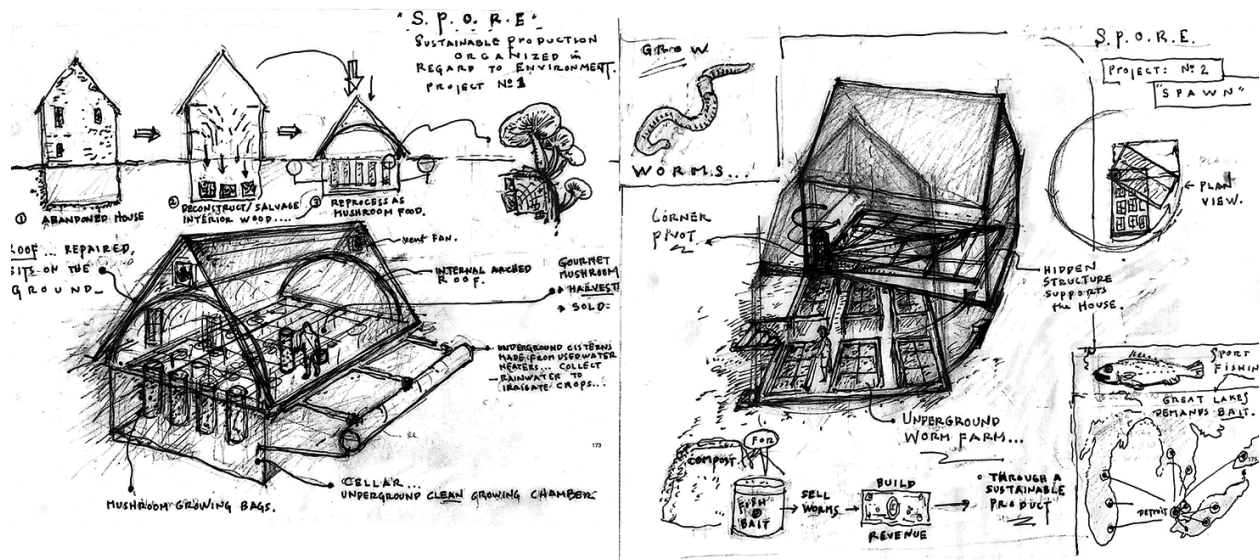 "S.P.O.R.E"
SUSTAINABLE PRODUCTION
ORGANIZED in
REGARD TO ENVIRONMENT.
PROJECT Nº1
① ABANDONED HOUSE
② DECONSTRUCT/SALVAGE
INTERIOR WOOD....
③ REPROCESS AS
MUSHROOM FOOD.
ROOF... REPAIRED,
SITS ON THE
GROUND_
vent FAN.
INTERNAL ARCHED
ROOF.
GOURMET
MUSHROOM
HARVEST
SOLD:
UNDERGROUND CISTERNS
MADE FROM USED WATER
HEATERS... COLLECT
RAINWATER TO
IRRIGATE CROPS...
173
MUSHROOM GROWING BAGS.
CELLAR...
UNDERGROUND CLEAN GROWING CHAMBER
GROW
WORMS...
S.P.O.R.E.
PROJECT: Nº2
"SPAWN"
PLAN
VIEW.
CORNER
PIVOT
HIDDEN
STRUCTURE
SUPPORTS
the HOUSE.
UNDERGROUND
WORM FARM...
SPORT
FISHIN
GREAT LAKES
DEMANDS BAIT.
DETROIT
COMPOST.
FOR
FISH
BAIT
SELL
WORMS
BUILD
REVENUE
THROUGH A
SUSTAINABLE
PRODUCT